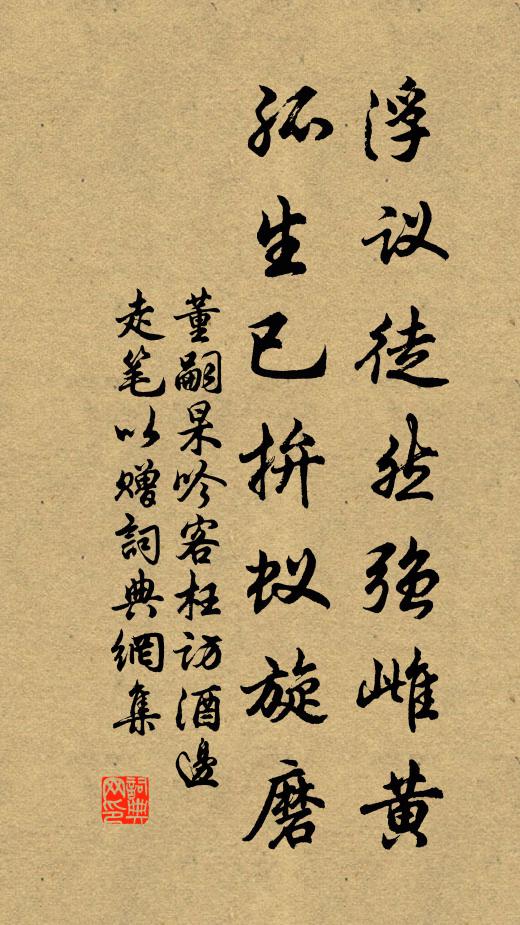 浮议徒然强雌黄
孤生已拚蚁旋磨
董嗣杲吟客枉访酒边
走笔以赠詞典網集
詞典
网印